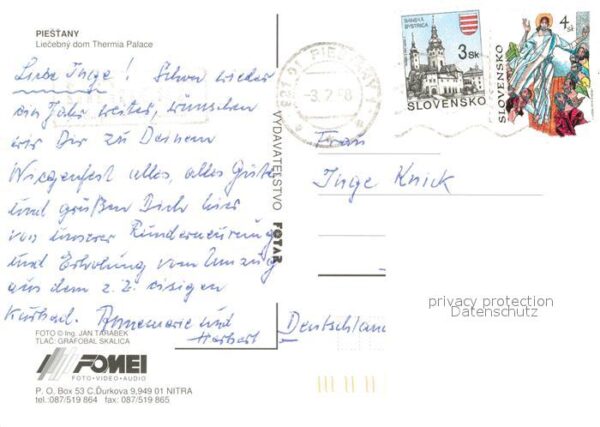 PIEŠŤANY
Liečebný dom Thermia Palace
Liebe Inge! Schon wieder
ein Jahr weiter, wünschen
wir Dir zu Deinem
Wiegenfest alles, alles Gute
und grüßen Dich hier
von unserer Runderneuerung
und Erholung vom Umzug
aus dem z. Z. eisigen
Kurbad. Annemarie und
Herbert
FOTO © Ing. JÁN TARÁBEK
TLAČ: GRAFOBAL SKALICA
FOMEI
FOTO·VIDEO·AUDIO
P. O. Box 53 C.Ďurkova 9,949 01 NITRA
tel.:087/519 864 fax: 087/519 865
VYDAVATEĽSTVO FOTAR
921 01 PIEŠŤANY 1
-3.2.98
BANSKÁ
BYSTRICA
3 SK
SLOVENSKO
4 SK
SLOVENSKO
Frau
Inge Knick
Deutschland
privacy protection
Datenschutz